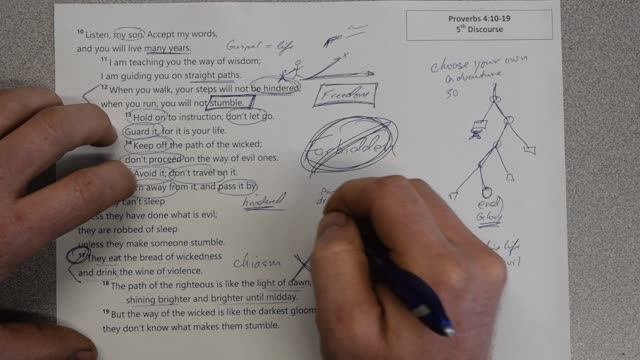 Proverbs 4:10-19
5th Discourse
10 Listen, my son. Accept my words,
and you will live many years.
11 I am teaching you the way of wisdom;
I am guiding you on straight paths.
12 When you walk, your steps will not be hindered;
when you run, you will not stumble.
13 Hold on to instruction; don't let go.
Guard it, for it is your life.
14 Keep off the path of the wicked;
don't proceed on the way of evil ones.
Avoid it; don't travel on it.
away from it, and pass it by
can't sleep
they have done what is evil;
they are robbed of sleep
unless they make someone stumble.
17 They eat the bread of wickedness
and drink the wine of violence.
18 The path of the righteous is like the light of dawn,
shining brighter and brighter until midday.
19 But the way of the wicked is like the darkest gloom
they don't know what makes them stumble.
Gospel = life
Freedom
Forbidden
hindered
chiasm
choose your own
adventure
so
end
Glory
life